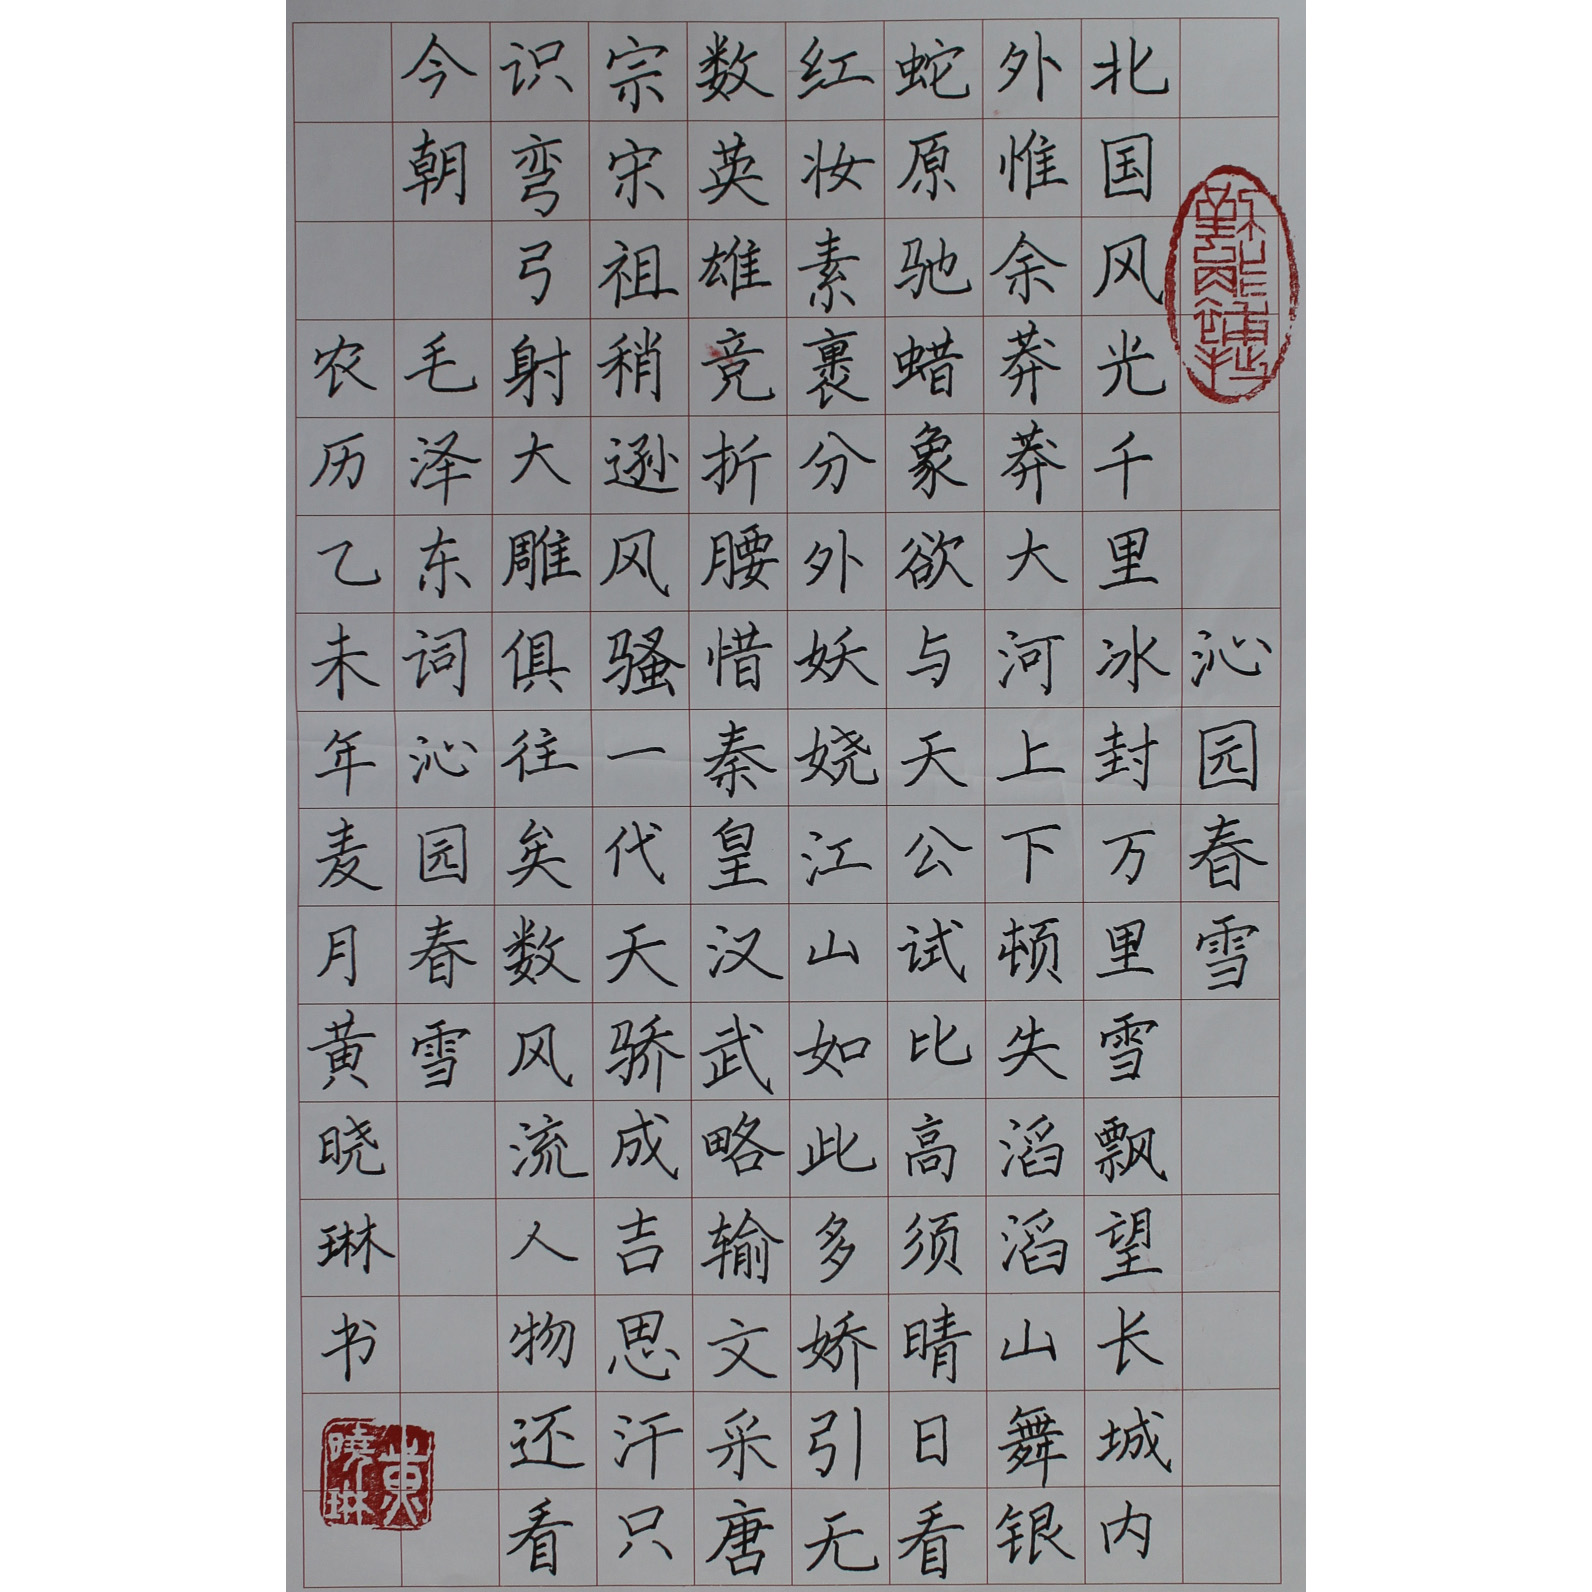 沁园春雪
北国风光千里冰封万里雪飘望长城内
外惟余莽莽大河上下顿失滔滔山舞银
蛇原驰蜡象欲与天公试比高须晴日看
红妆素裹分外妖娆江山如此多娇引无
数英雄竞折腰惜秦皇汉武略输文采唐
宗宋祖稍逊风骚一代天骄成吉思汗只
识弯弓射大雕俱往矣数风流人物还看
今朝 毛泽东词沁园春雪
农历乙未年麦月黄晓琳书
黄曉琳